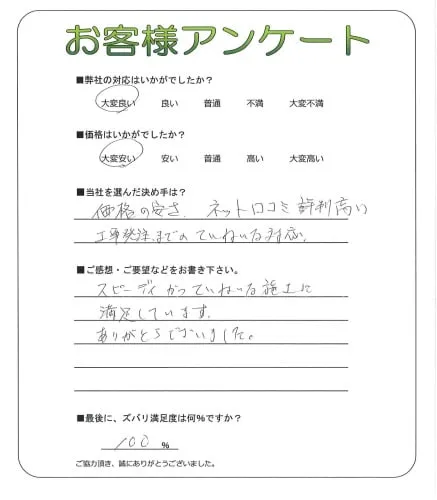 お客様アンケート
■弊社の対応はいかがでしたか？
大変良い 良い 普通 不満 大変不満
■価格はいかがでしたか？
大変安い 安い 普通 高い 大変高い
■当社を選んだ決め手は？
価格の安さ、ネット口コミ評判高い
工事発注までのていねいな対応。
■ご感想・ご要望などをお書き下さい。
スピーディかつていねいな施工に
満足しています。
ありがとうございました。
■最後に、ズバリ満足度は何%ですか？
100 %
ご協力頂き、誠にありがとうございました。